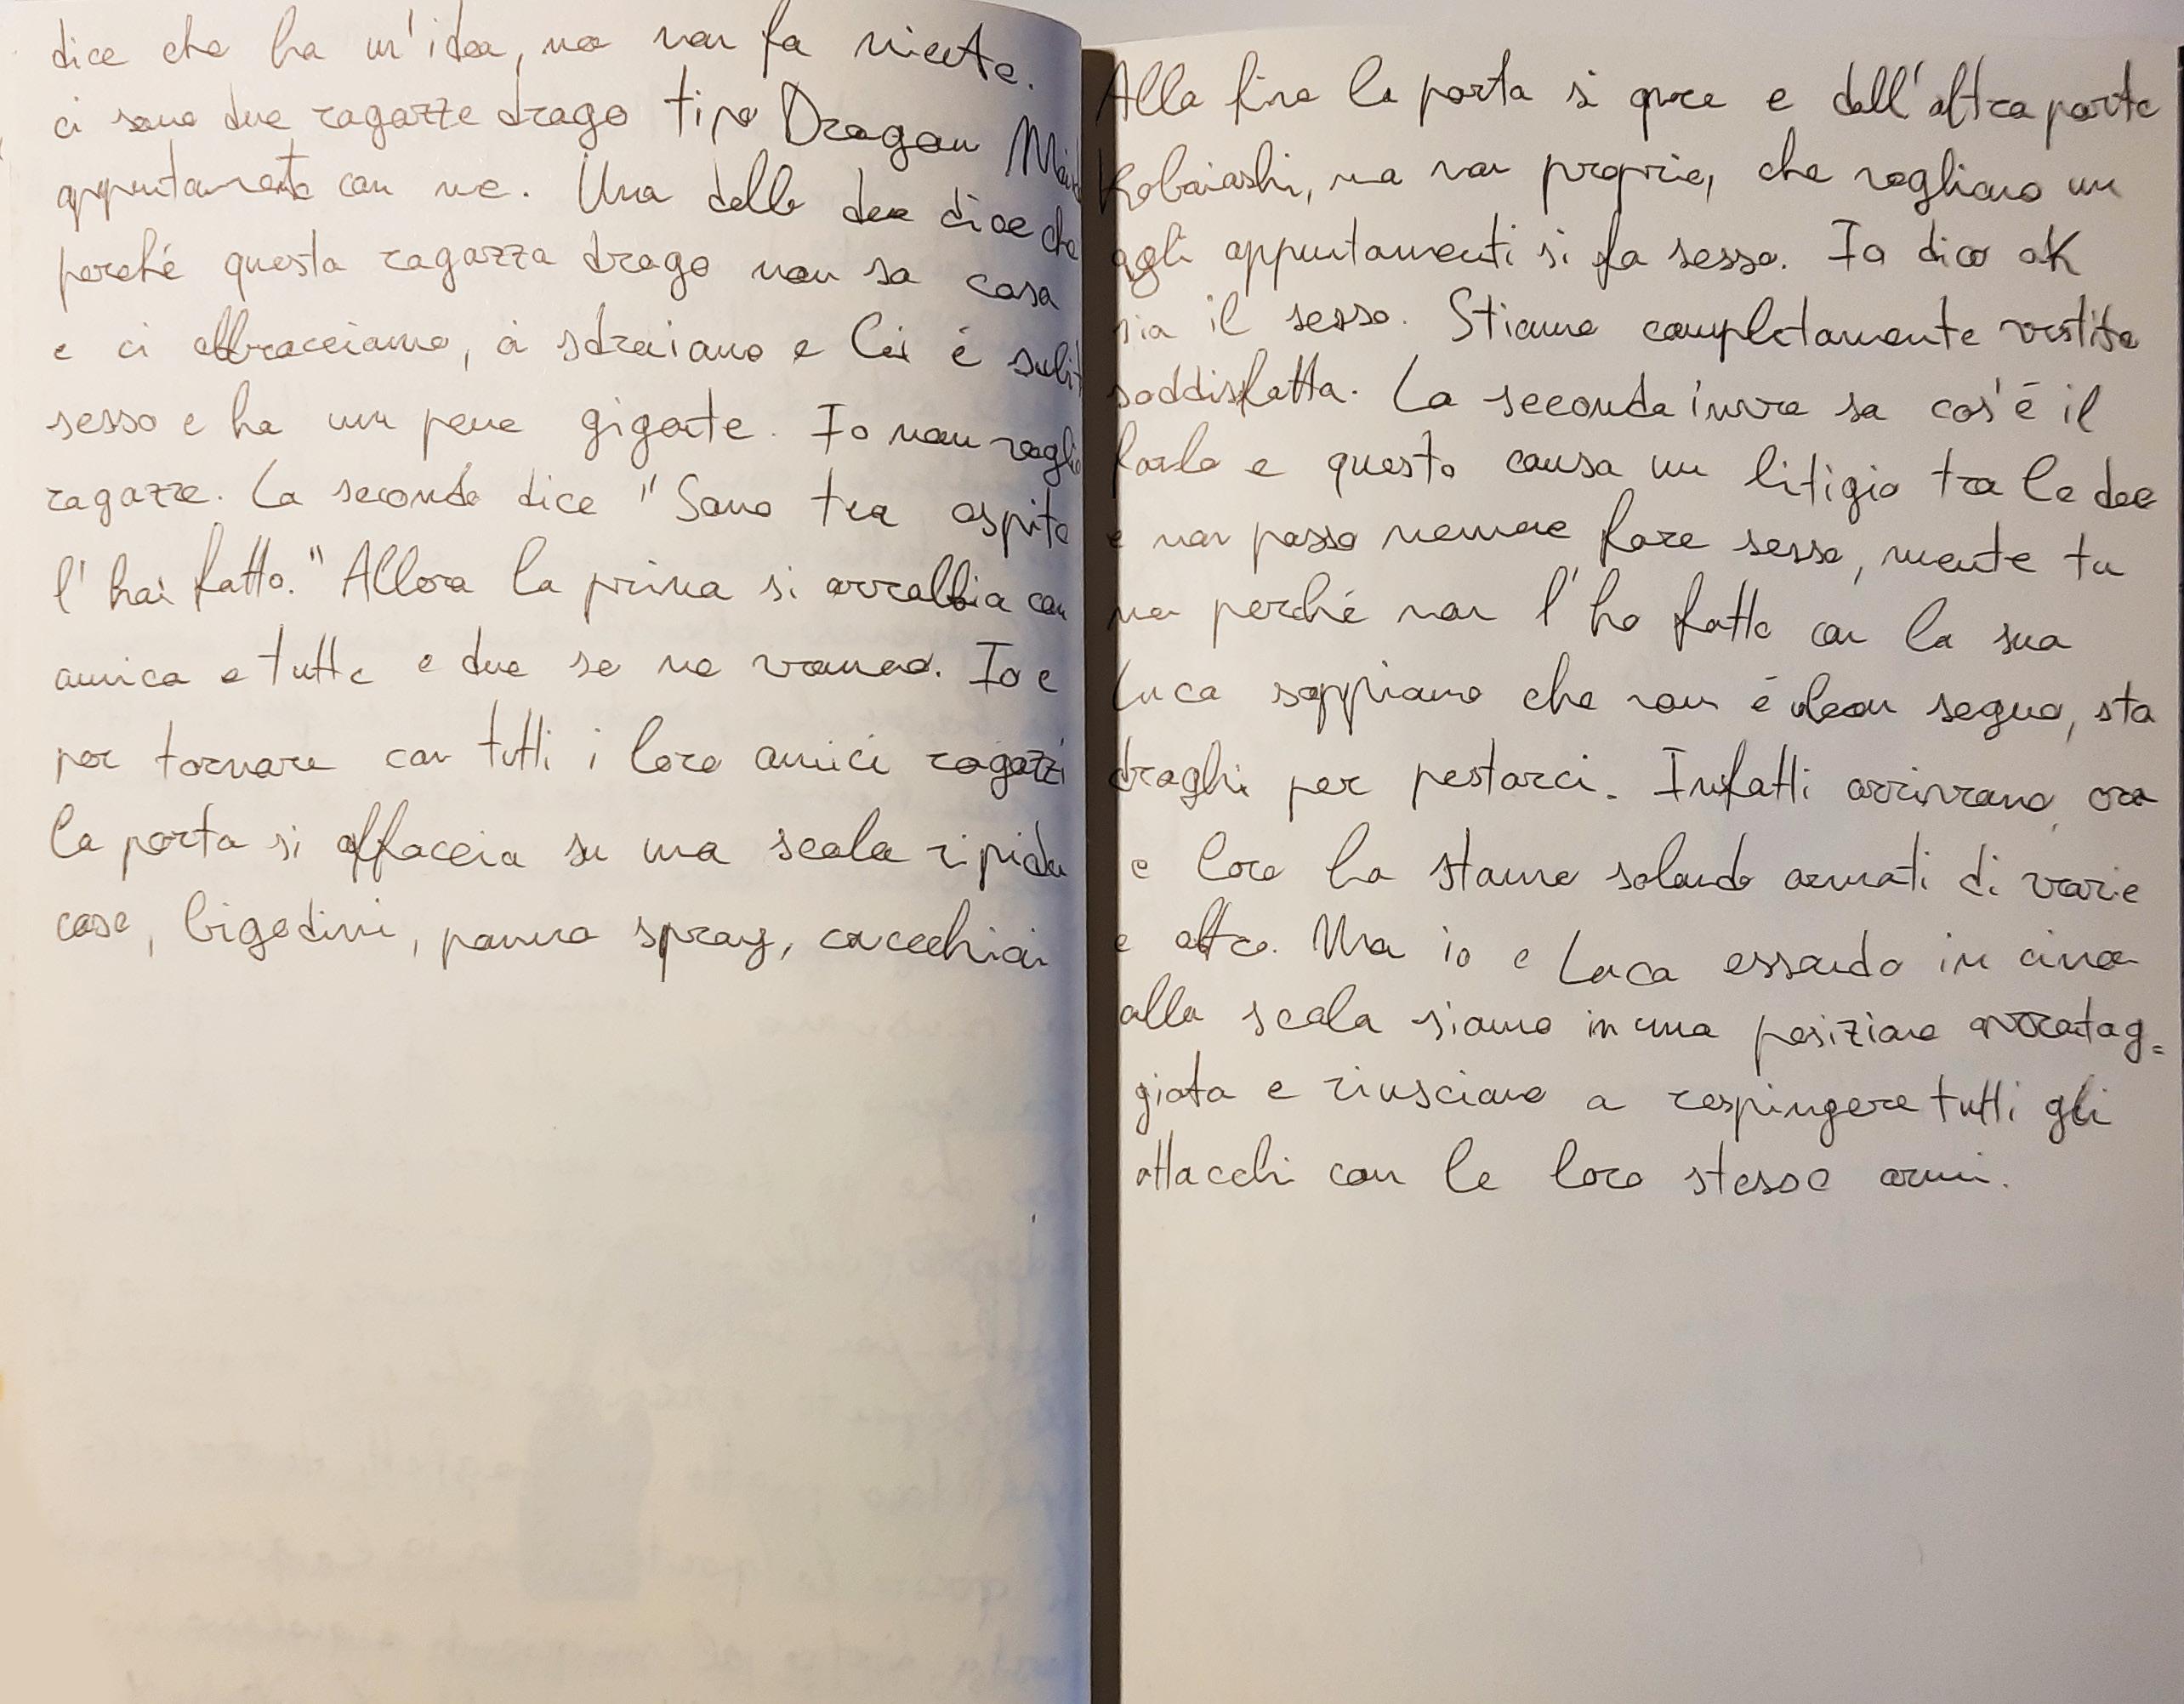 dice che ha un'idea, ma non fa niente. Alla fine la porta si apre e dall'altra parte
ci sono due ragazze drago tipo Dragon Maid Kobaiashi, ma non proprio, che vogliono un
appuntamento con me. Una delle due dice che agli appuntamenti si fa sesso. Io dico ok
perché questa ragazza drago non sa cosa sia il sesso. Stiamo completamente vestite
e ci abbracciamo, ci sdraiamo e lei è subito soddisfatta. La seconda invece sa cos'è il
sesso e ha un pene gigante. Io non voglio farlo e questo causa un litigio tra le due
ragazze. La seconda dice "Sono tua ospite e non posso nemmeno fare sesso, mente tu
l'hai fatto." Allora la prima si arrabbia con me perché non l'ho fatto con la sua
amica e tutte e due se ne vanno. Io e Luca sappiamo che non è buon segno, sta
per tornare con tutti i loro amici ragazzi draghi per pestarci. Infatti arrivano, ora
la porta si affaccia su una scala ripida e loro la stanno salendo armati di varie
cose, bigodini, panna spray, cucchiai e altro. Ma io e Luca essendo in cima
alla scala siamo in una posizione avvantag=
giata e riusciamo a respingere tutti gli
attacchi con le loro stesse armi.